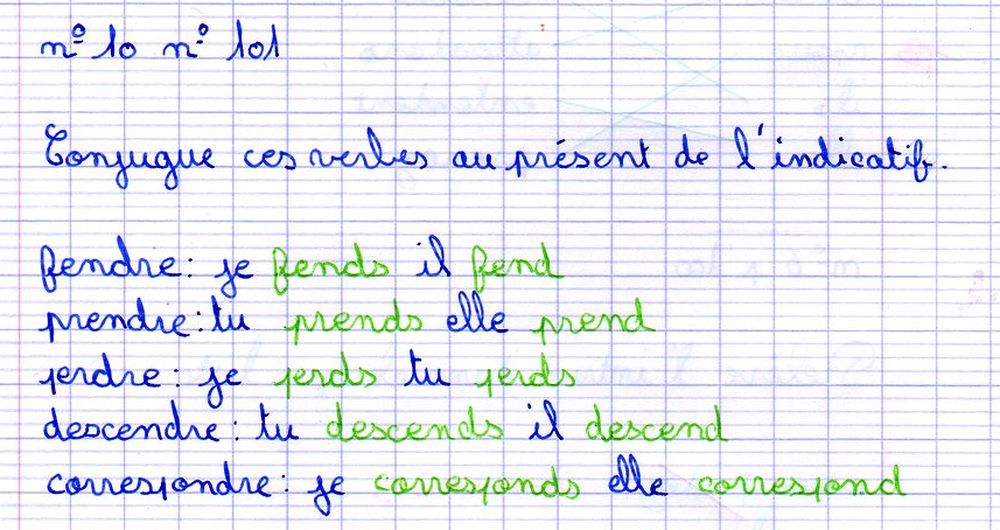 n° 10 n° 101
Conjugue ces verbes au présent de l'indicatif.
fendre: je fends il fend
prendre: tu prends elle prend
perdre: je perds tu perds
descendre: tu descends il descend
correspondre: je corresponds elle correspond